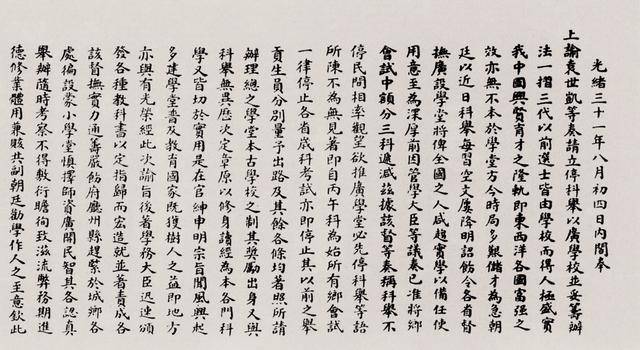 光緒三十一年八月初四日内閣奉
上諭袁世凱等奏請立停科舉以廣學校並妥籌辦
法一摺三代以前選士皆由學校而得人極盛實
我中國興賢育才之隆軌即東西洋各國富强之
效亦無不本於學堂方今時局多艱儲才為急朝
廷以近日科舉每習空文屢降明詔飭令各省督
撫廣設學堂將俾全國之人咸趨實學以備任使
用意至為深厚前因管學大臣等議奏已准將鄉
會試中額分三科遞減茲據該督等奏稱科舉不
停民間相率觀望欲推廣學堂必先停科舉等語
所陳不為無見著即自丙午科為始所有鄉會試
一律停止各省歲科考試亦即停止其以前之舉
貢生員分別量予出路及其餘各條均著照所請
辦理總之學堂本古學校之制其獎勵出身又與
科舉無異歷次定章原以修身讀經為本各門科
學又皆切於實用是在官紳申明宗旨聞風興起
多建學堂普及教育國家既獲樹人之益即地方
亦與有光榮經此次諭旨後著學務大臣迅速頒
發各種教科書以定指歸而宏造就並著責成各
該督撫實力通籌嚴飭府廳州縣趕緊於城鄉各
處徧設蒙小學堂慎擇師資廣開民智其各認真
舉辦隨時考察不得敷衍瞻徇致滋流弊務期進
德修業體用兼賅共副朝廷勸學作人之至意欽此